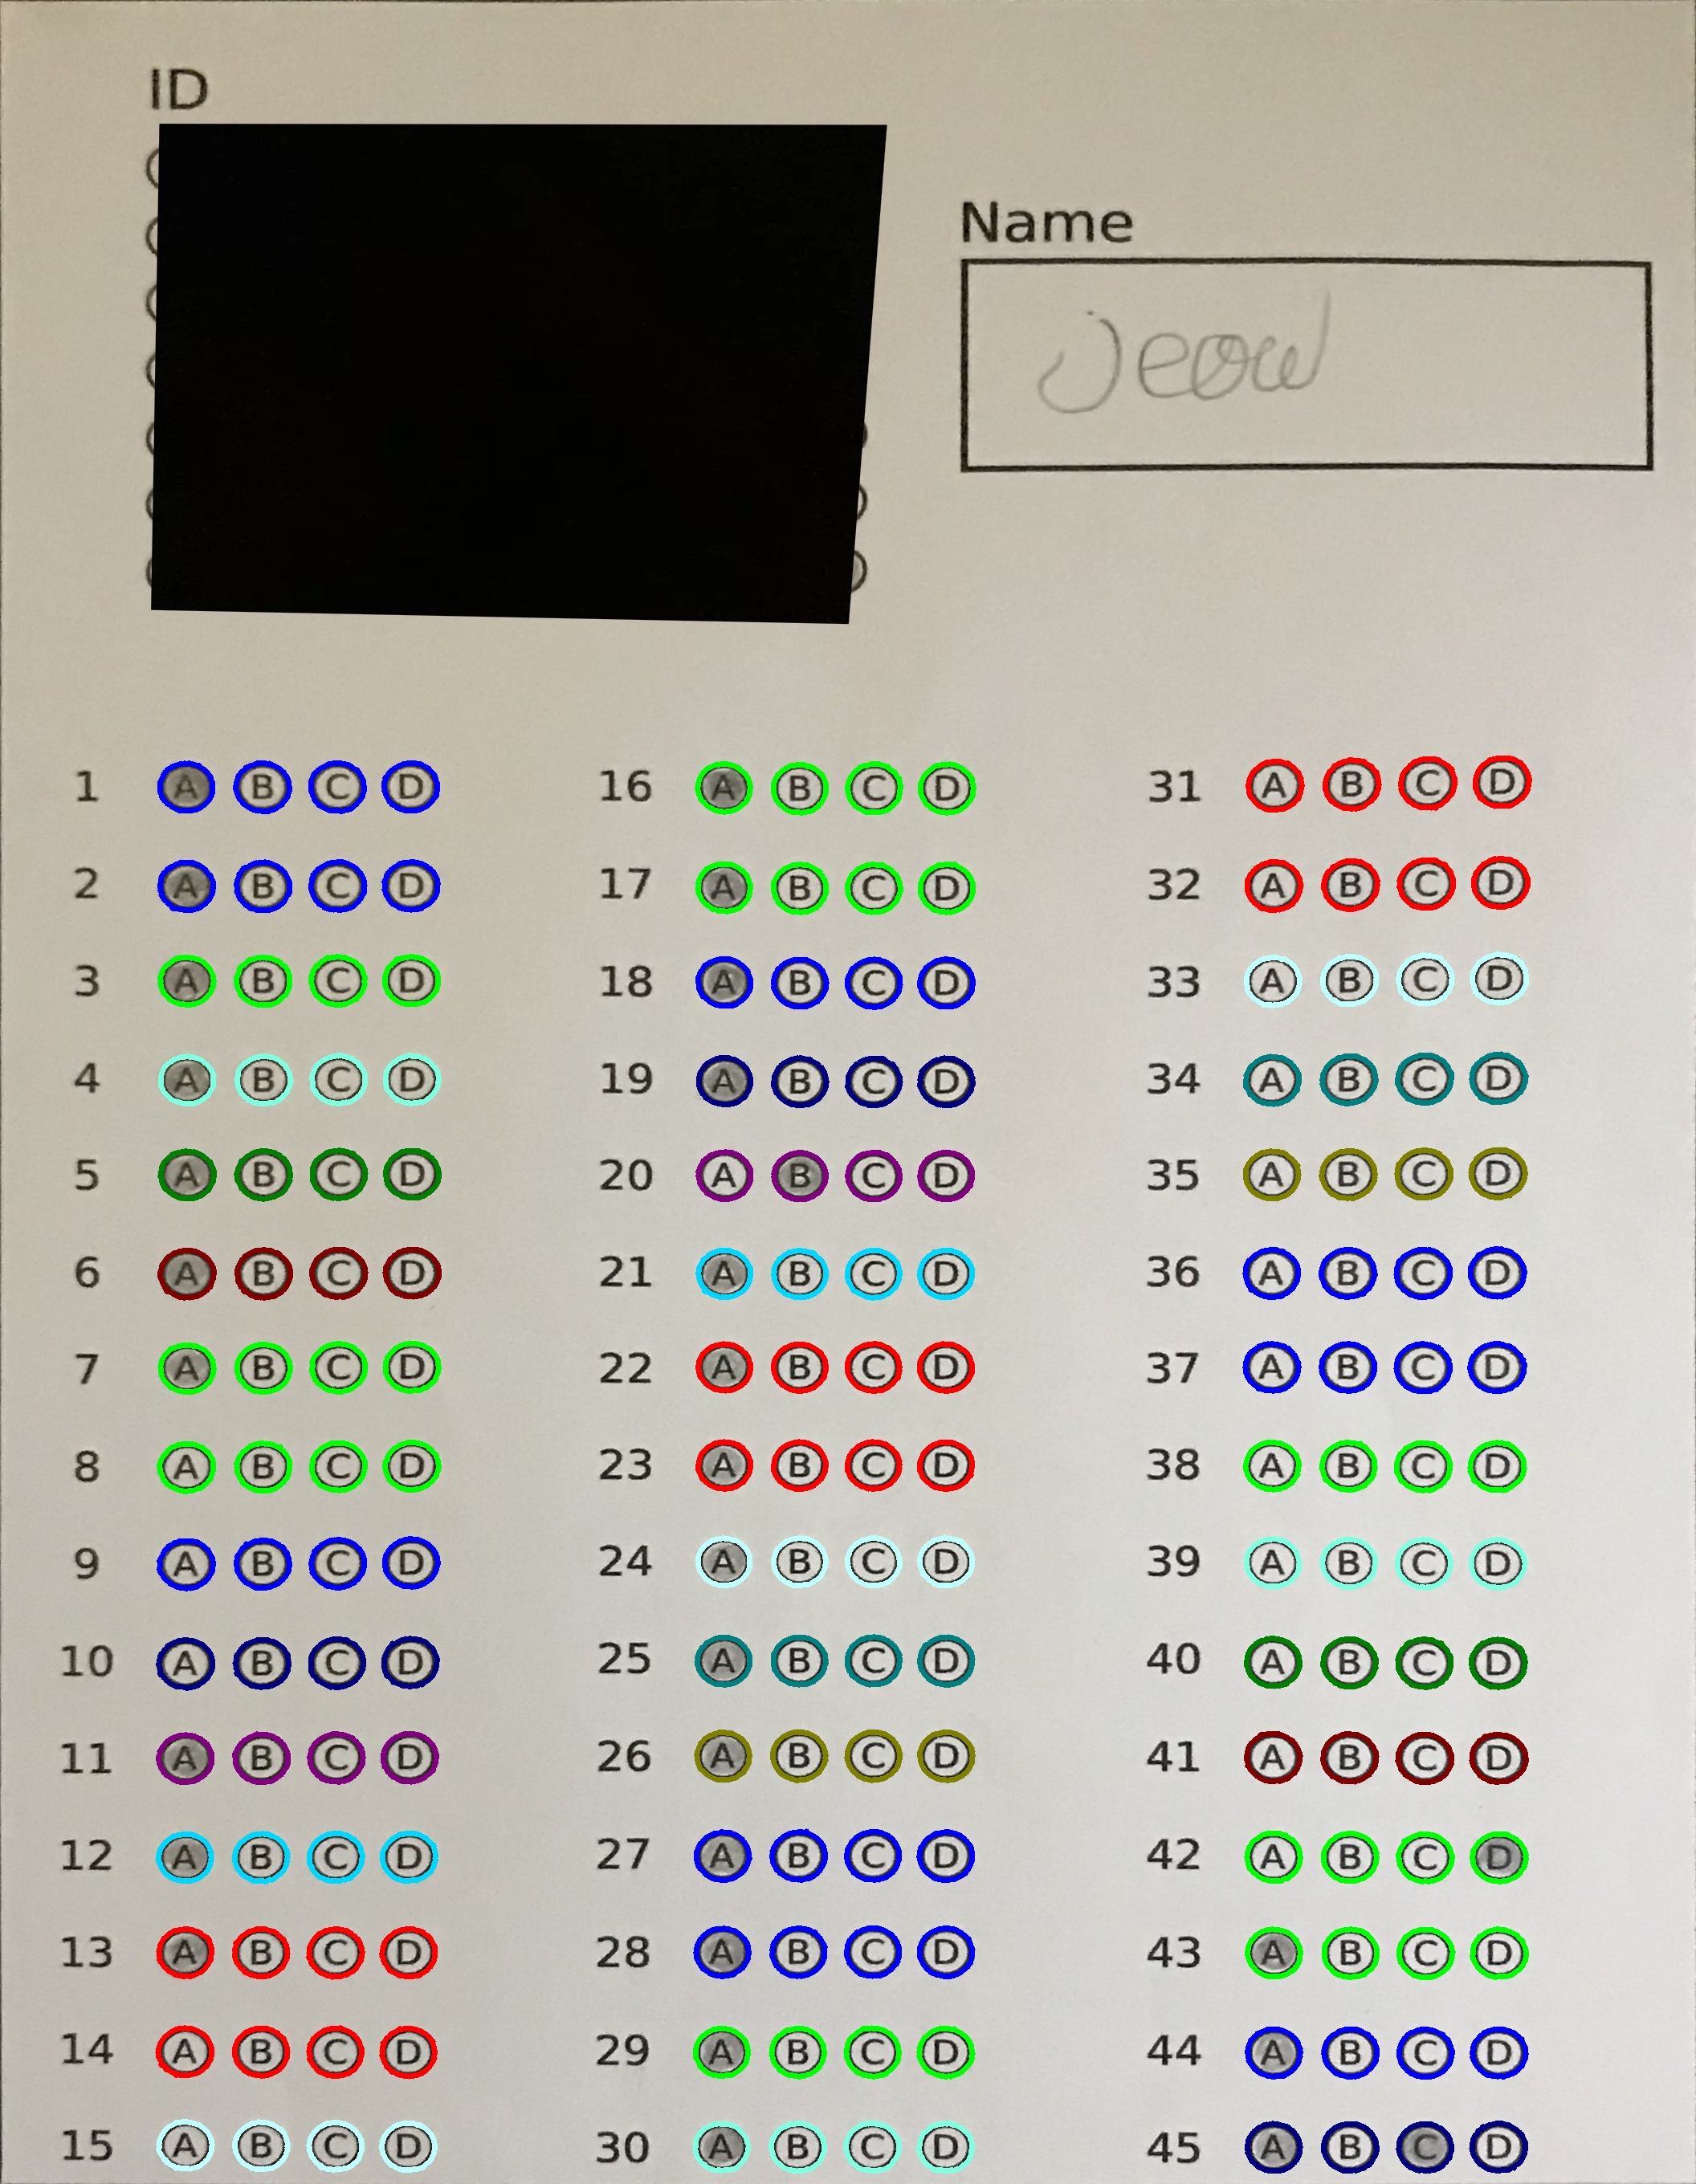 ID
Name
Jeow
1 A B C D
2 A B C D
3 A B C D
4 A B C D
5 A B C D
6 A B C D
7 A B C D
8 A B C D
9 A B C D
10 A B C D
11 A B C D
12 A B C D
13 A B C D
14 A B C D
15 A B C D
16 A B C D
17 A B C D
18 A B C D
19 A B C D
20 A B C D
21 A B C D
22 A B C D
23 A B C D
24 A B C D
25 A B C D
26 A B C D
27 A B C D
28 A B C D
29 A B C D
30 A B C D
31 A B C D
32 A B C D
33 A B C D
34 A B C D
35 A B C D
36 A B C D
37 A B C D
38 A B C D
39 A B C D
40 A B C D
41 A B C D
42 A B C D
43 A B C D
44 A B C D
45 A B C D